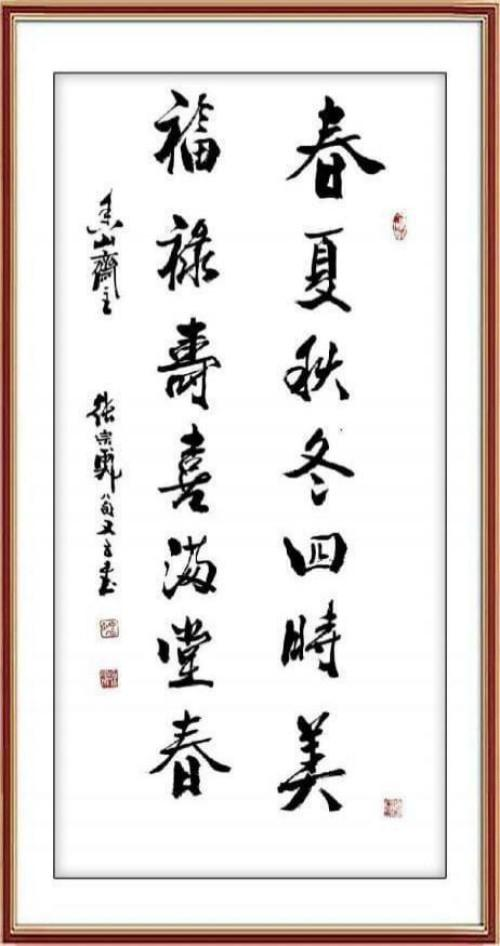 春夏秋冬四時美
福祿壽喜滿堂春
山齋主 張宗 八旬又五書